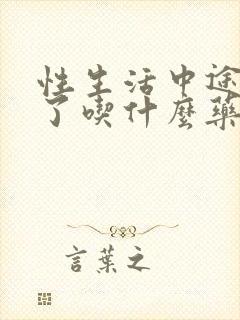 性生活中途
了喫什麼藥
言葉之